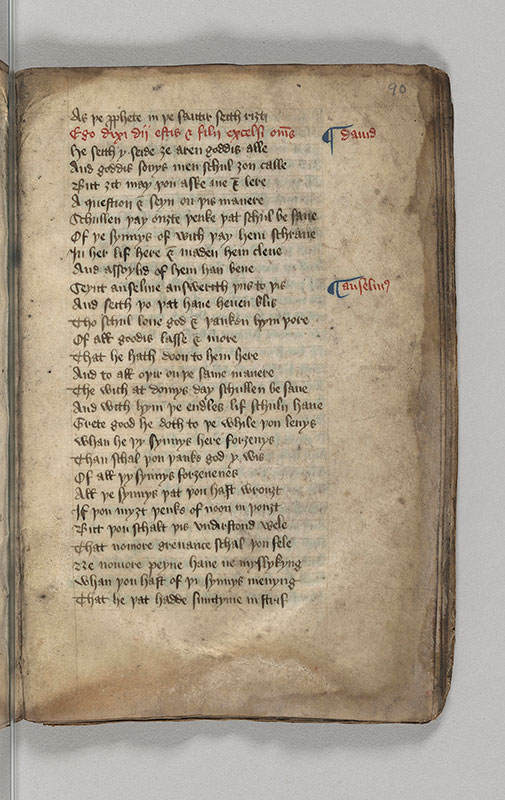 90
As þe prophete in þe sautir seith riȝti
Ego dixi dii estis & filii excelsi om̄s
¶ dauid
He seith y seide ȝe aren goddis alle
And goddis sonys men schul ȝou calle
But ȝit may þou aske me & lere
A question & seyn on þis manere
Schullen þay ouȝte þenke þat schul be saue
Of þe synnys of with þay hem schraue
In her lif here & maden hem clene
And assoylid of hem han bene
Seynt anselme answerith þus to þis
And seith þo þat haue heuen blis
¶ anselmus
Tho schul loue god & þanken hym þore
Of all goodis lasse & more
That he hath doon to hem here
And to all oþir on þe same manere
The with at domys day schullen be saue
And with hym þe endles lif schuln haue
Grete good he doth to þe while þou leuys
Whan he þy synnys here forȝeuys
Than schal þou þanke god y wis
Of all þy synnys forȝeuenes
All þe synnys þat þou hast wrouȝt
If þou myȝt þenke of noon in þouȝt
But þou schalt þis vndirstond wele
That nomore greuance schal þou fele
Ne nomore peyne haue ne myslykyng
Whan þou hast of þi synnys menyng
That he þat hadde sumtyme in stris